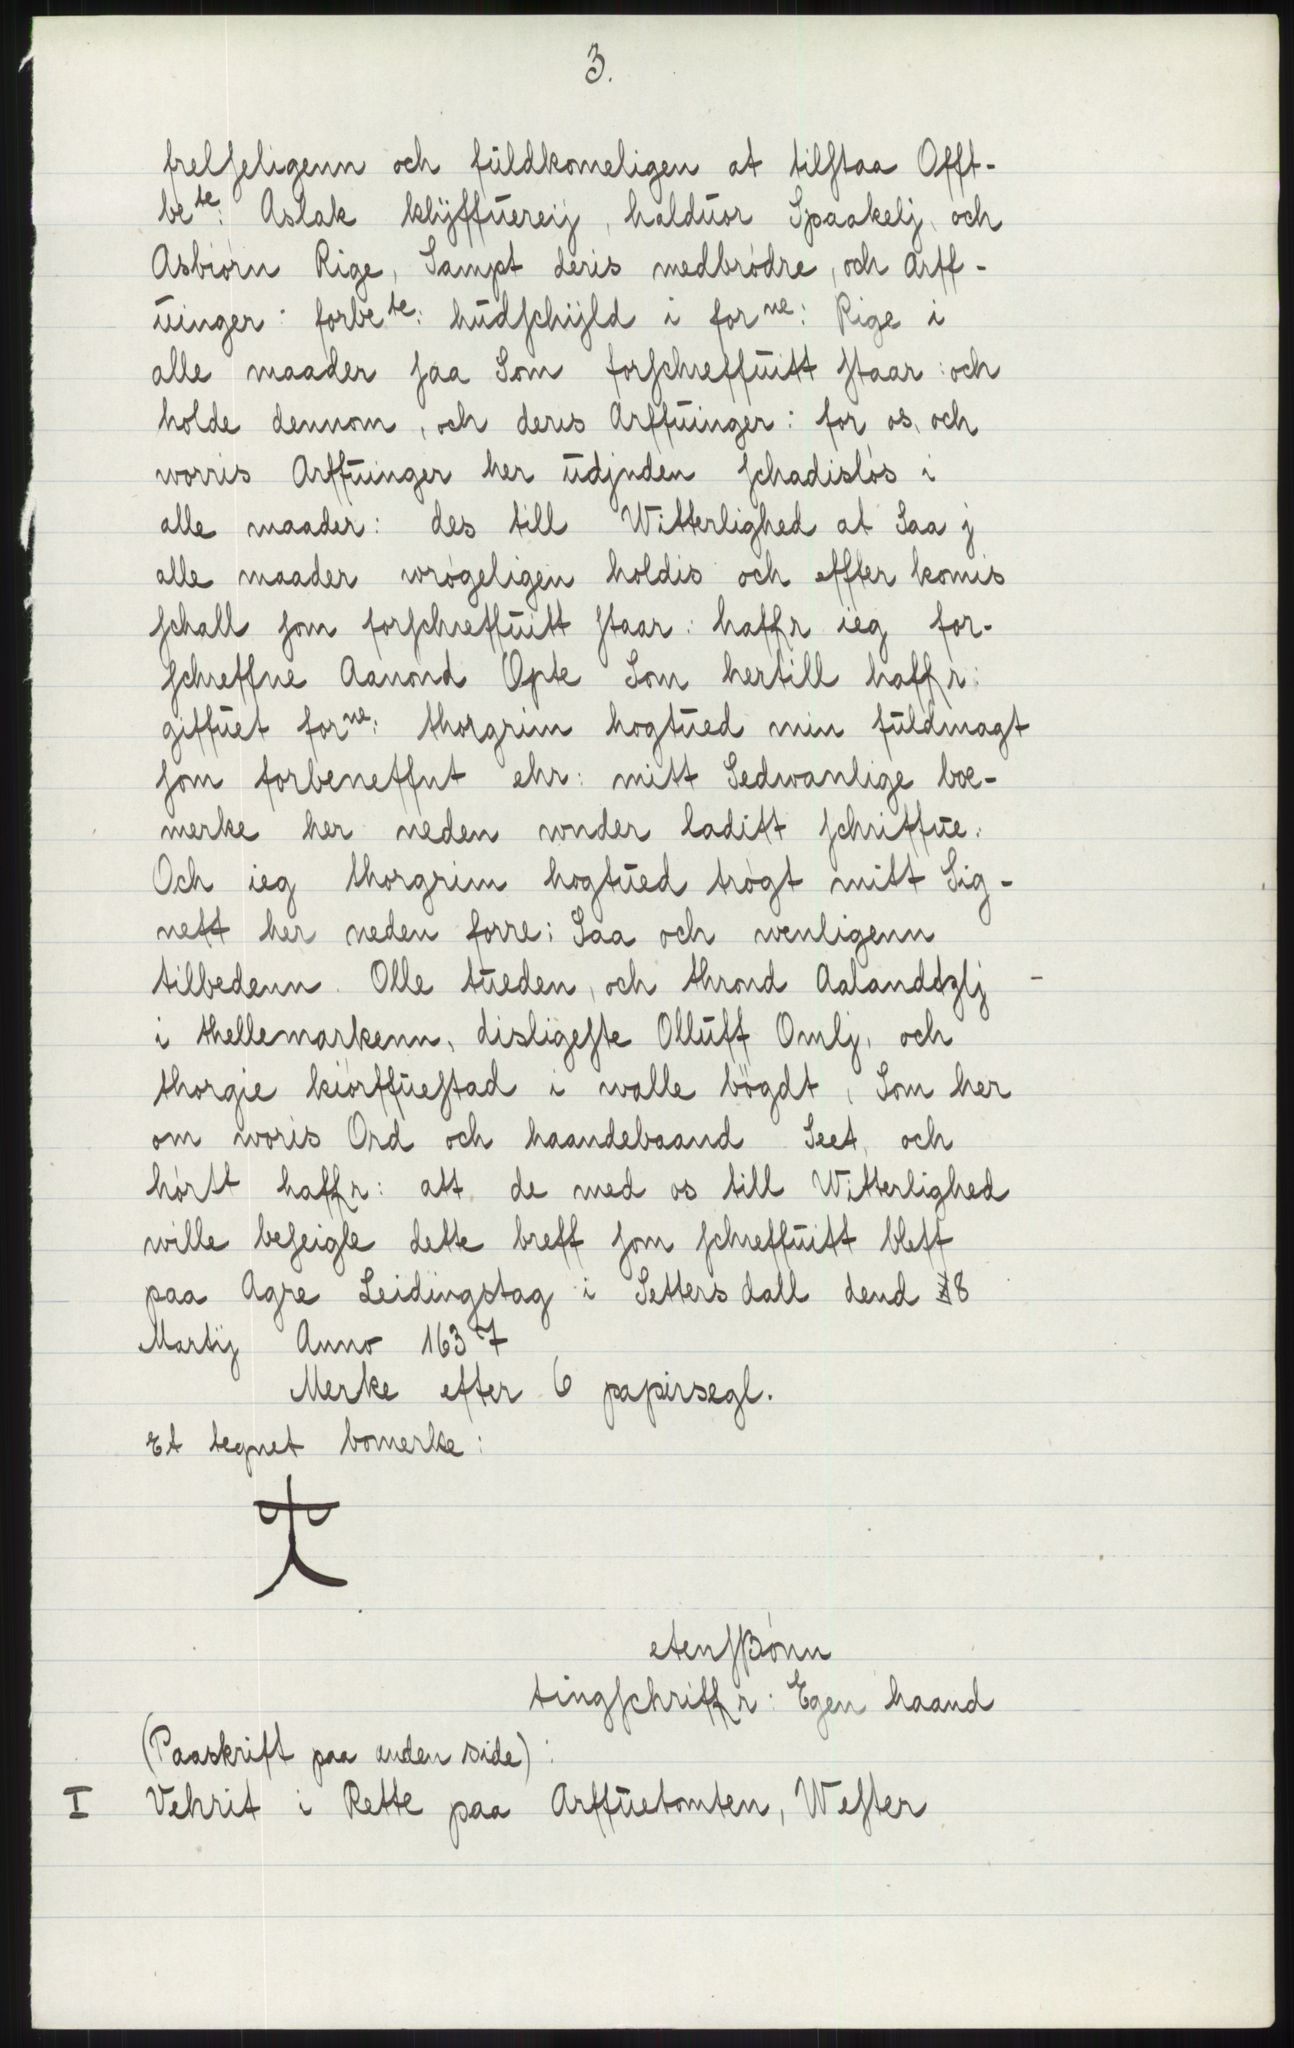 3.
frelſeligenn och fŭldkomeligen at tilſtaa Offt-
be^te: Aslak klÿffŭereÿ, haldŭor Spaakelj, och
Asbiórn Rige, Sampt deris medbródre, och Arff-
ŭinger: forbe^te: hŭdſchÿld i for^ne: Rige i
alle maader ſaa Som forſchreffŭitt ſtaar: och
holde dennom, och deris Arffŭinger: for os, och
worris Arffŭinger her ŭdjnden ſchadislós i
alle maader: des till Witterlighed at Saa j
alle maader wrógeligen holdis och effter komis
ſchall ſom forſchreffŭitt ſtaar: haffr ieg for-
ſchreffne Aanond Opte Som hertill haffr:
giffŭet for^ne: thorgrim hogtŭed min fŭldmagt
ſom forbeneffnt ehr: mitt Sedwanlige boe-
merke her neden wnder laditt ſchriffŭe:
Och ieg thorgrim hogtŭed trógt mitt Sig-
nett her neden forre: Saa och wenligenn
tilbedenn Olle tŭeden, och thrond Aalandtzlj -
i thellemarkenn, disligeſte Ollŭff Omlj, och
thorgie kiórffŭeſtad i walle bógdt, Som her
om woris Ord och haandebaand Seet, och
hórtt haffr: att de med os till Witterlighed
wille beſeigle dette breff ſom ſchreffŭitt bleff
paa Agre Leidingstag i Setters dall dend 18
Martij Anno 1637
Merke efter 6 papirsegl.
Et tegnet bomerke:
etenſßónn
tingſchriffr: Egen haand
(Paaskrift paa anden side):
I Vehrit i Rette paa Arffŭetomten, Weſter